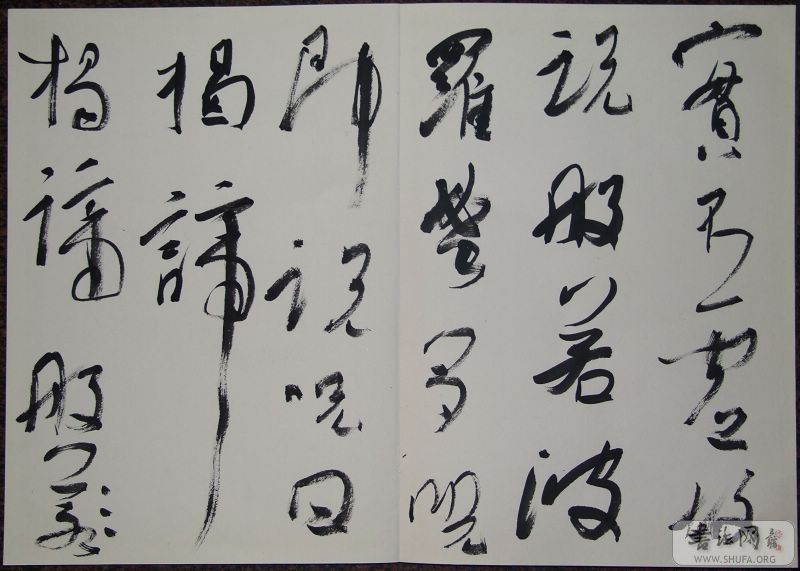 實不虛故
説般若波
羅蜜多呪
即説呪曰
揭諦
揭諦般羅
書法网
WWW.SHUFA.ORG